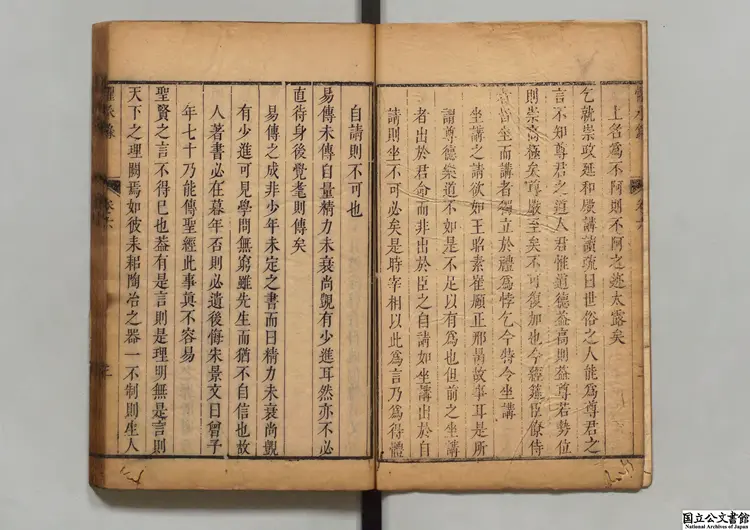 上名爲不阿則不阿之迹太露矣
乞就崇政延和殿講讀疏曰世俗之人能爲尊君之
言不知尊君之道人君惟道德益高則益尊若勢位
則崇高極矣尊嚴至矣不可復加也今經筵臣僚侍
者皆坐而講者獨立於禮爲悖乞今特令坐講
坐講之請欲如王昭素崔頤正邢昺故事耳是所
謂尊德樂道不如是不足以有爲也但前之坐講
者出於君命而非出於臣之自請如坐講出於自
請則坐不可必矣是時宰相以此爲言乃爲得體
自請則不可也
易傳未傳自量精力未衰尚覬有少進耳然亦不必
直待身後覺耄則傳矣
易傳之成非少年未定之書而曰精力未衰尚覬
有少進可見學問無窮雖先生而猶不自信也故
人著書必在暮年否則必遺後悔朱景文曰曾子
年七十乃能傳聖經此事眞不容易
聖賢之言不得已也葢有是言則是理明無是言則
天下之理闕焉如彼耒耜陶冶之器一不制則生人
卷之六
国立公文書館
National Archives of Japan